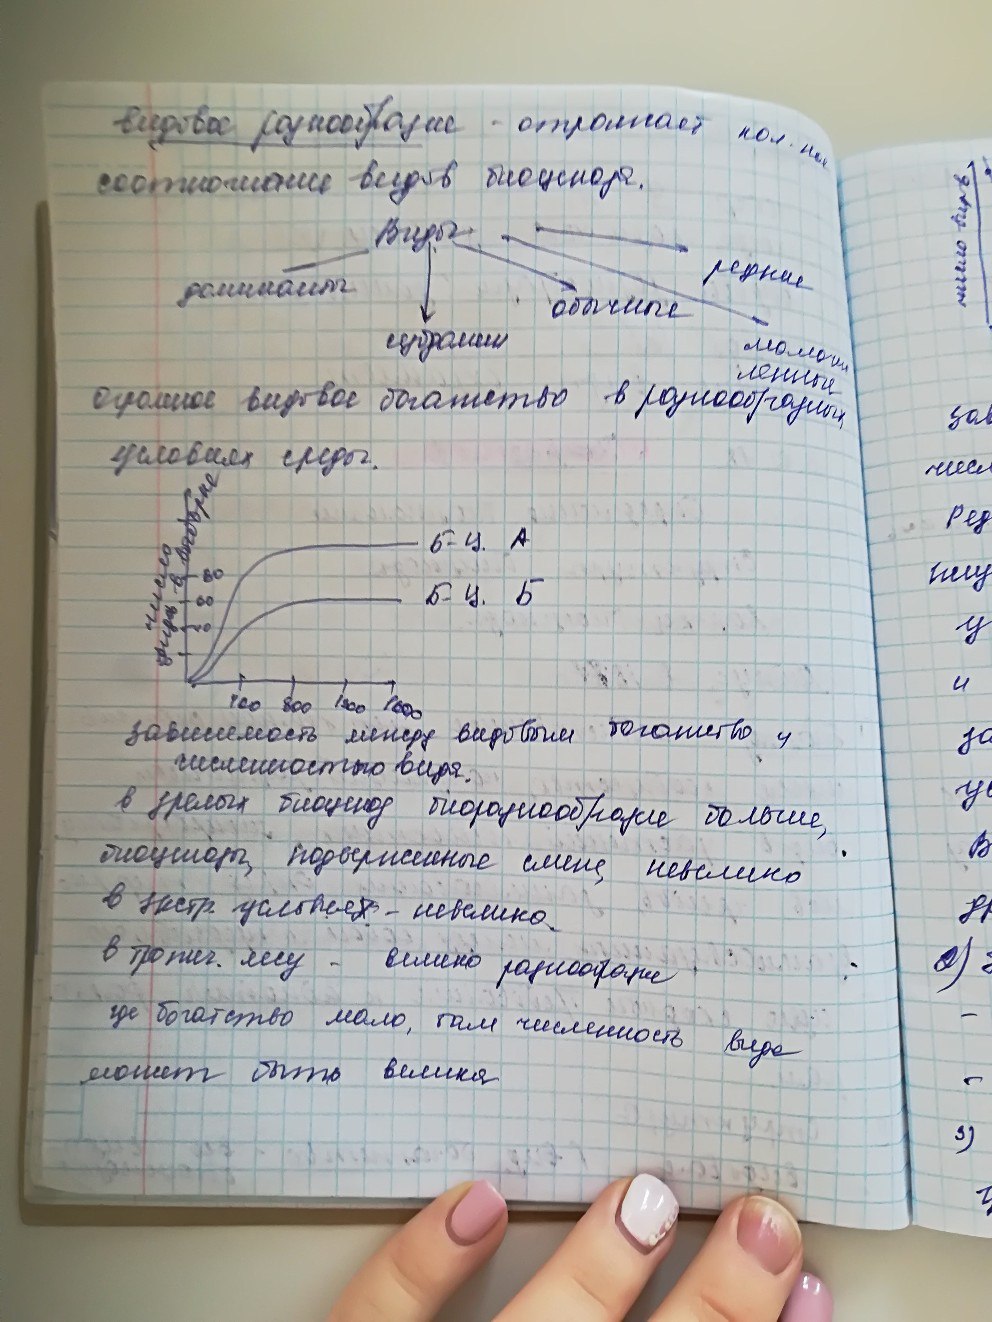 видовое разнообразие - отражает кол.
соотношение видов биоценоза.
Виды
доминанты
субдомин
обычные
редкие
малочис
ленные
огромное видовое богатство в разнообразных
условиях среды.
число
видов в выборке
80
60
40
Б-Ц. А
Б-Ц. Б
400 800 1200 1600
зависимость между видовым богатство и
численностью вида.
в зрелых биоценоз биоразнообразие больше,
биоценозы, подверженные смене, невелико
в экстр. условиях - невелико.
в тропич. лесу - велико разнообразие
где богатство мало, там численность вида
может быть велика
число видов
зав
числ
Ред
у
и
за
ус
В
2)
-
-
3)